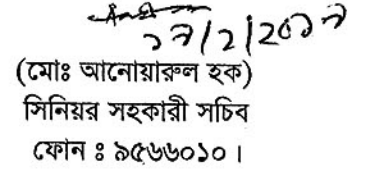 (মোঃ আনোয়ারুল হক)
সিনিয়র সহকারী সচিব
ফোন ঃ ৯৫৬৬০১০।